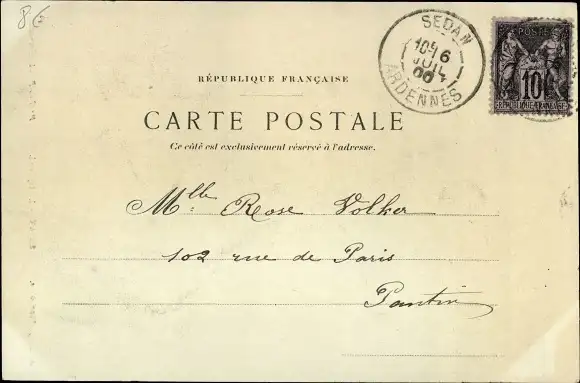 86
SEDAN
10 6
JUIL
00
ARDENNES
POSTES
10
RÉPUBLIQUE FRANÇAISE
RÉPUBLIQUE FRANÇAISE
CARTE POSTALE
Ce côté est exclusivement réservé à l'adresse.
Mlle Rose Volker
102 rue de Paris
Pantin